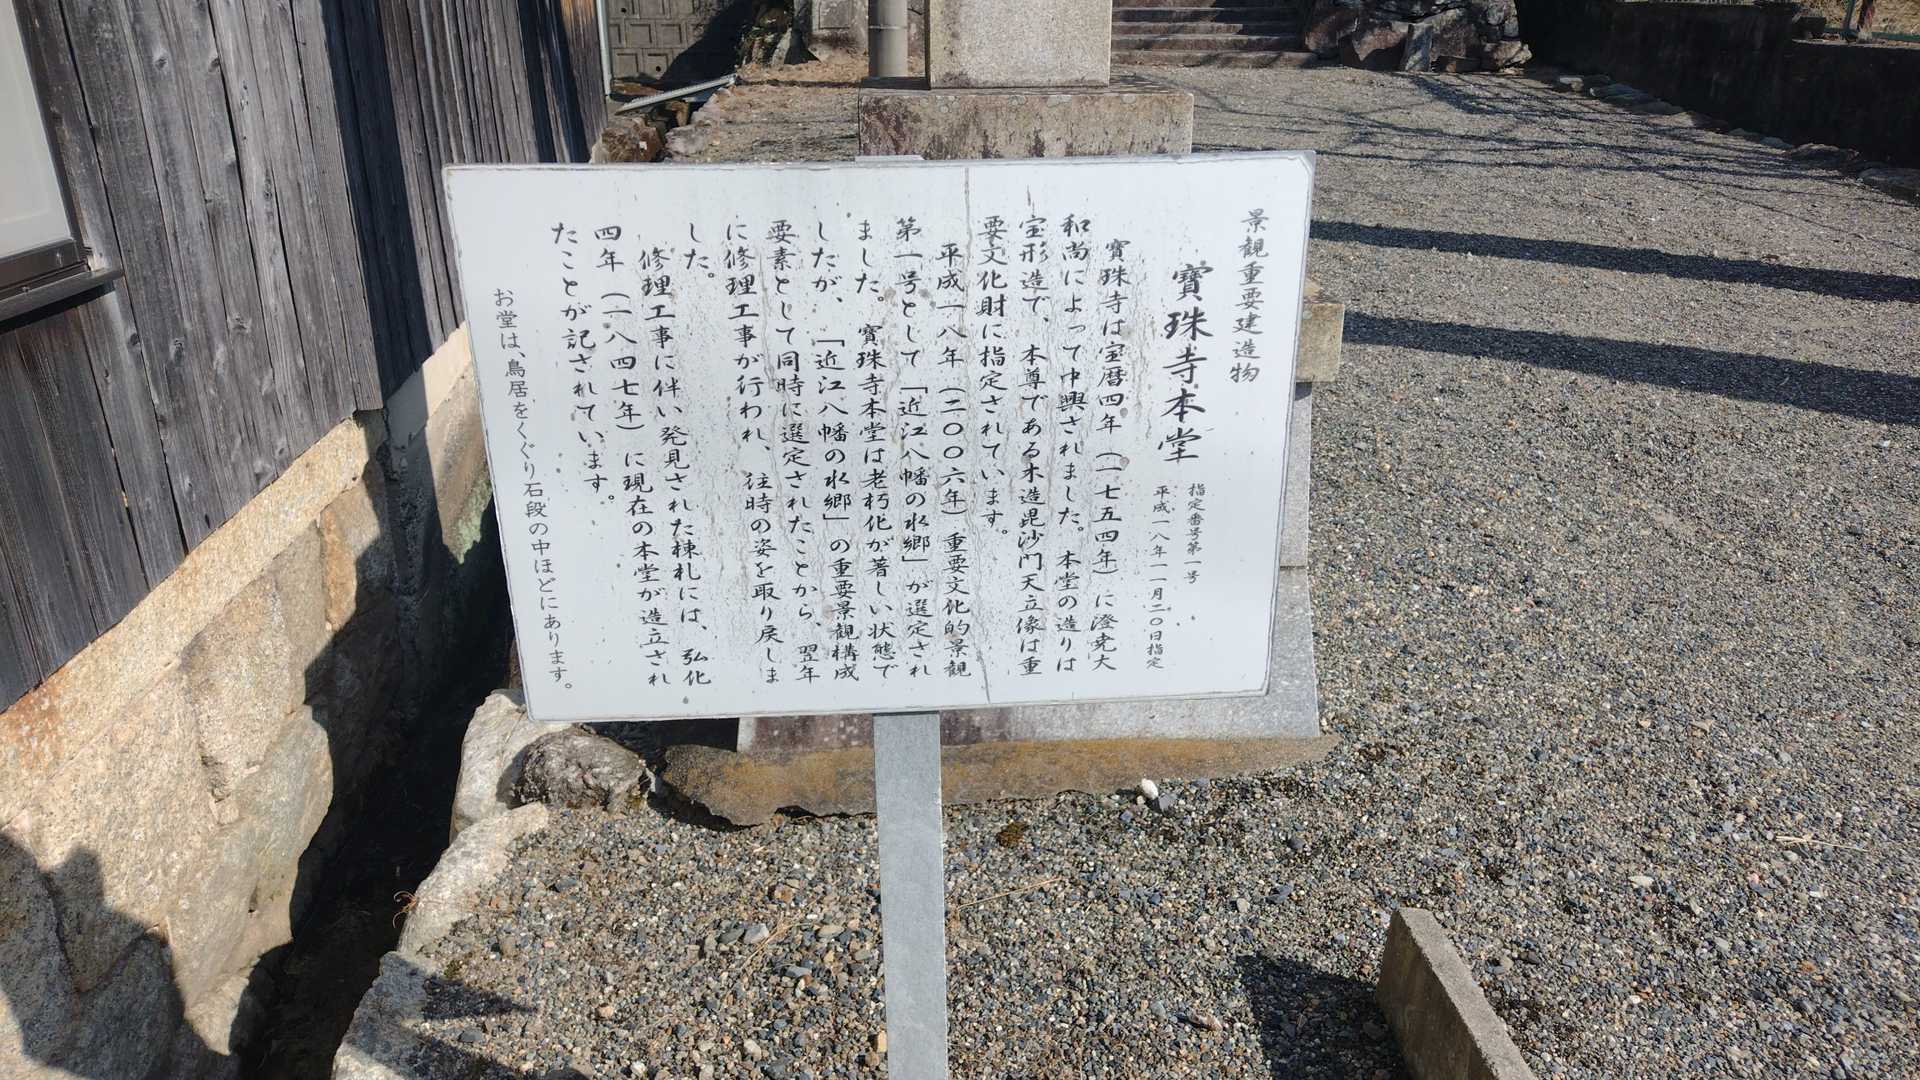 景観重要建造物
寶珠寺本堂
指定番号第一号
平成一八年一一月二〇日指定
寶珠寺は宝暦四年（一七五四年）に澄尭大
和尚によって中興されました。本堂の造りは
宝形造で、本尊である木造毘沙門天立像は重
要文化財に指定されています。
平成一八年（二〇〇六年）重要文化的景観
第一号として「近江八幡の水郷」が選定され
ました。寶珠寺本堂は老朽化が著しい状態で
したが、「近江八幡の水郷」の重要景観構成
要素として同時に選定されたことから、翌年
に修理工事が行われ、往時の姿を取り戻しま
した。
修理工事に伴い発見された棟札には、弘化
四年（一八四七年）に現在の本堂が造立され
たことが記されています。
お堂は、鳥居をくぐり石段の中ほどにあります。